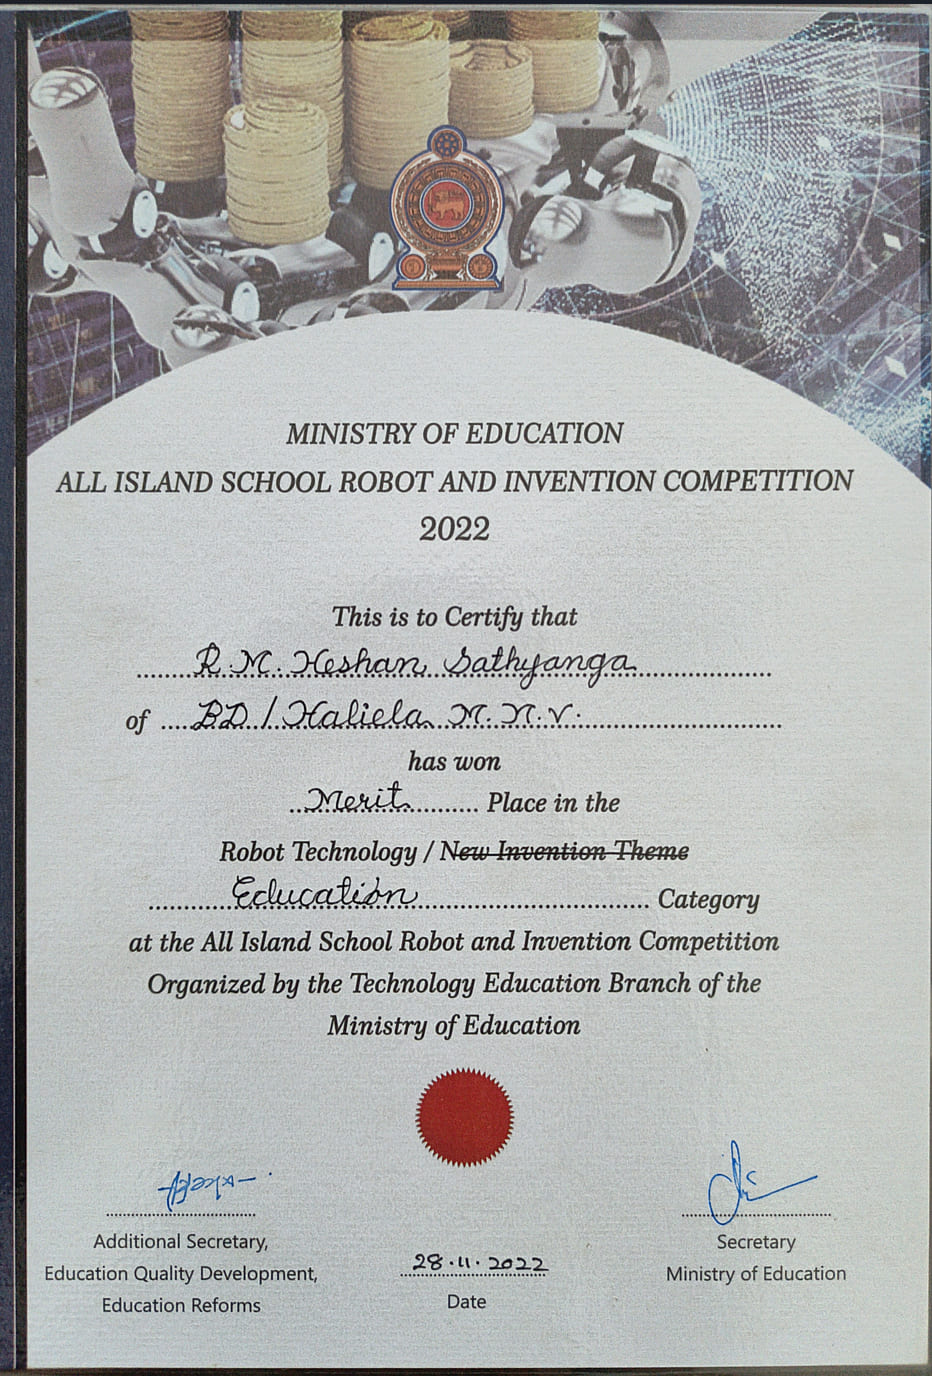 MINISTRY OF EDUCATION
ALL ISLAND SCHOOL ROBOT AND INVENTION COMPETITION
2022
This is to Certify that
R.M. Heshan Sathyanga
of BD / Haliela M. M. V.
has won
Merit Place in the
Robot Technology / New Invention Theme
Education Category
at the All Island School Robot and Invention Competition
Organized by the Technology Education Branch of the
Ministry of Education
Additional Secretary,
Education Quality Development,
Education Reforms
28.11.2022
Date
Secretary
Ministry of Education